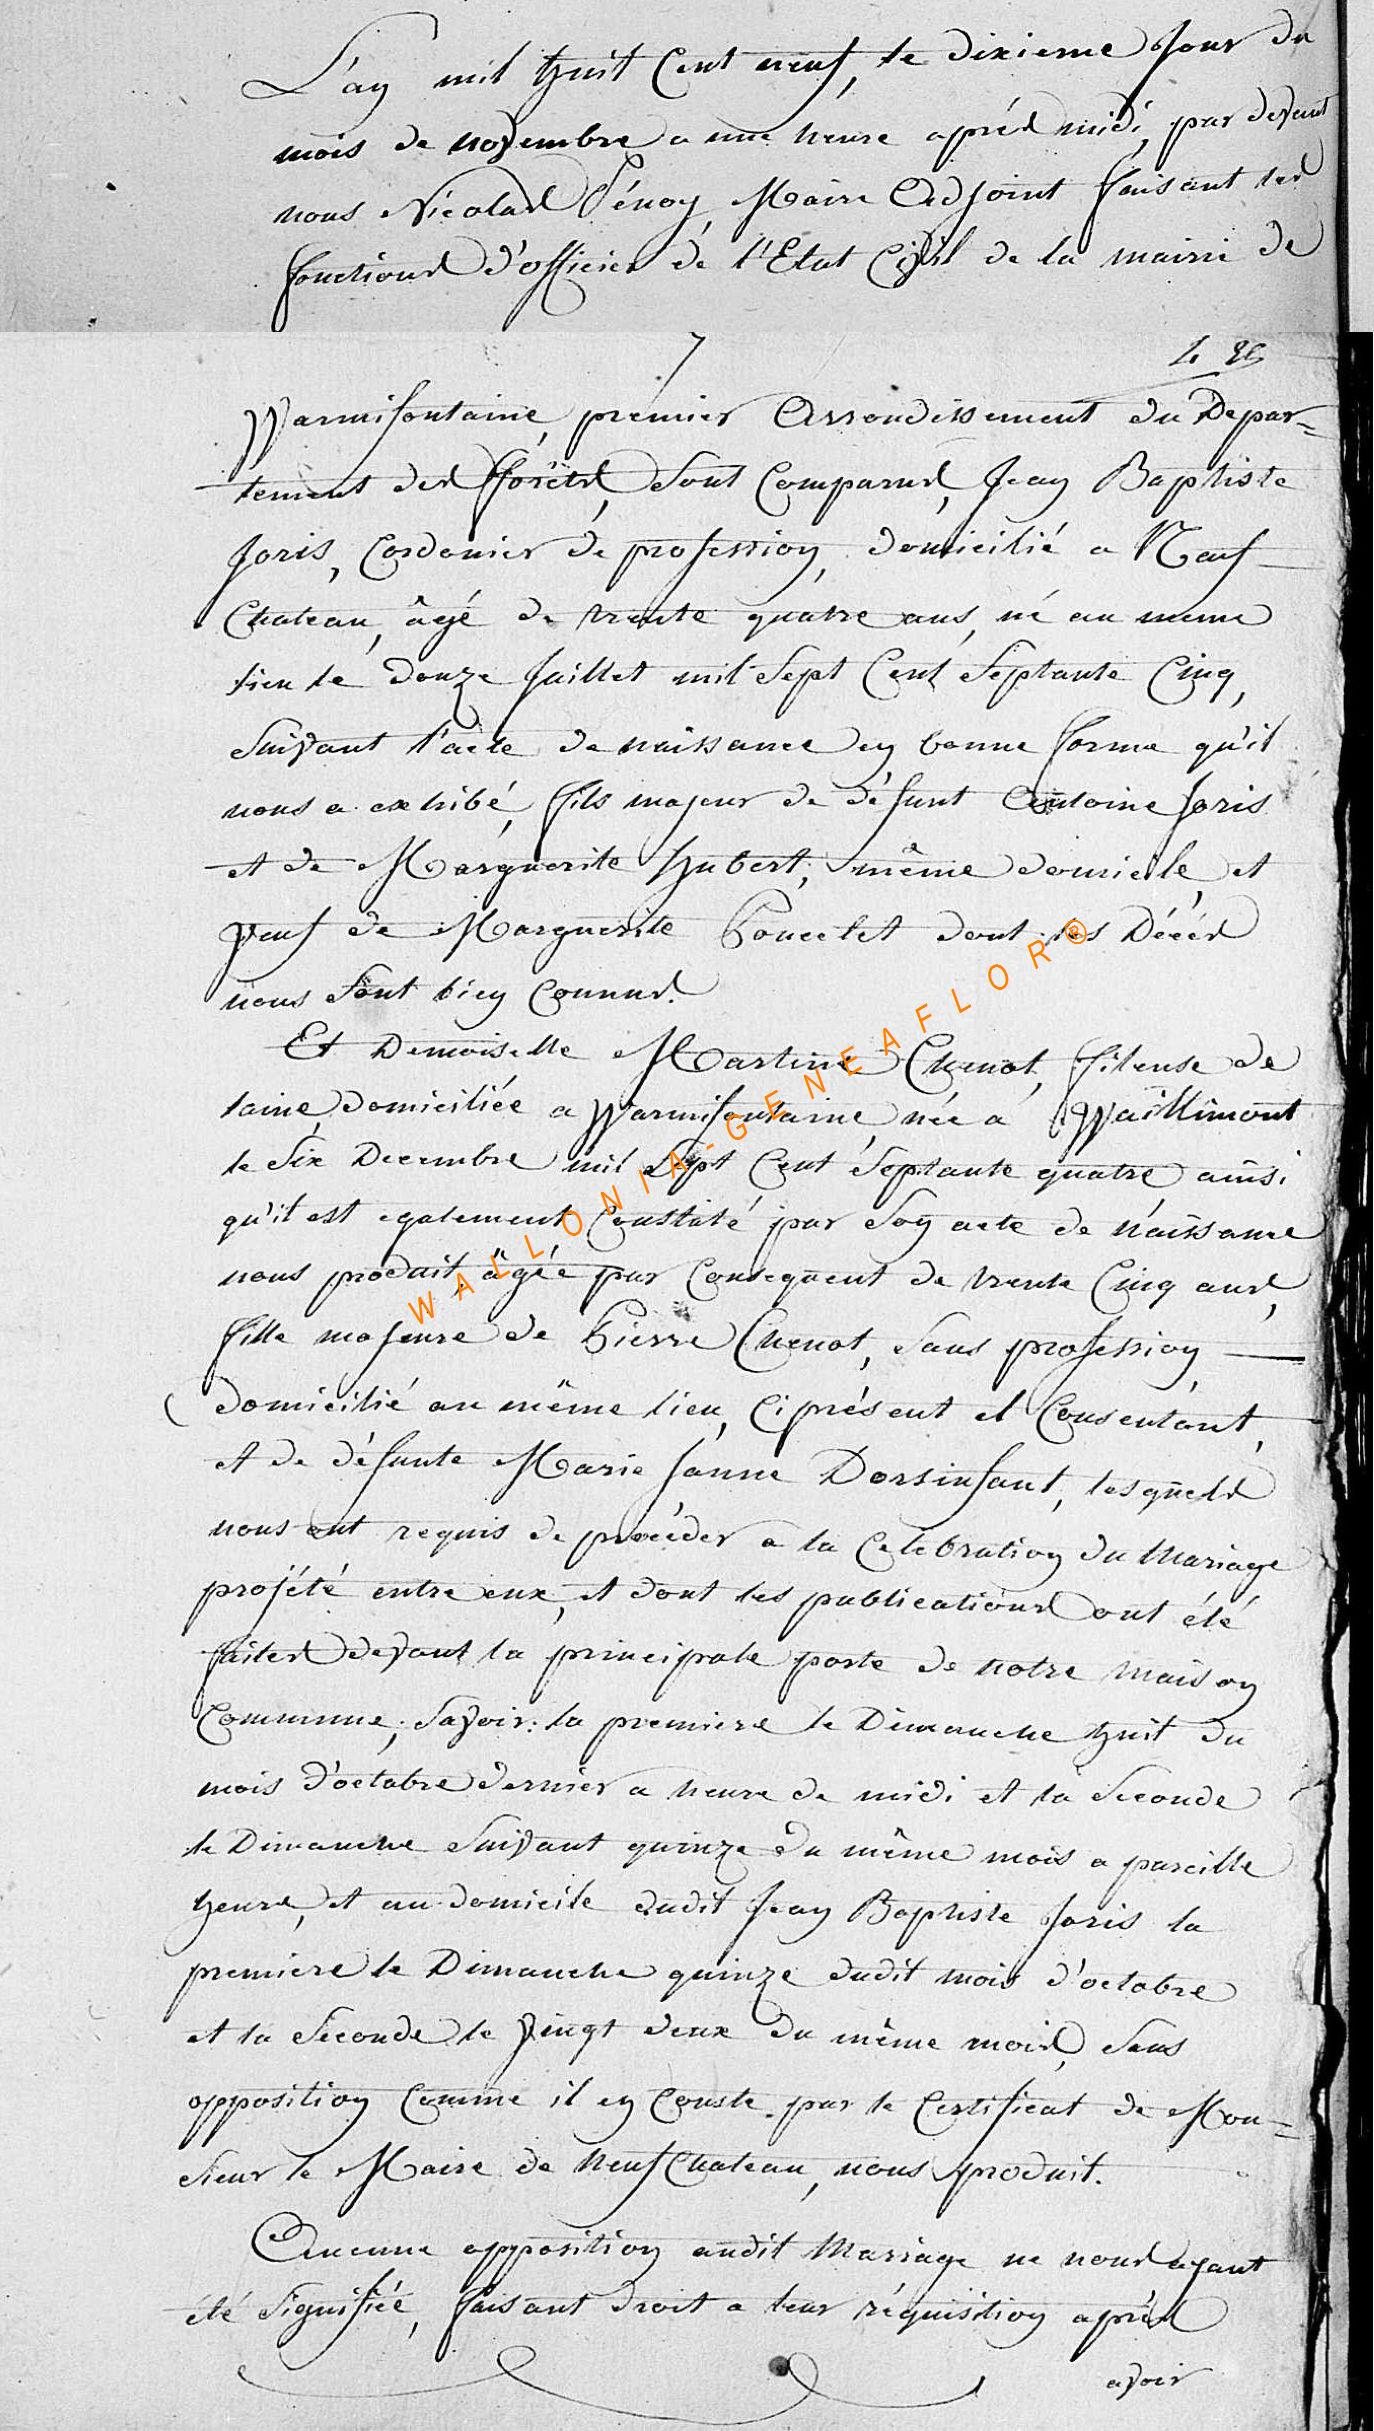 L'an mil huit Cent neuf, le dixieme Jour du
mois de novembre a une heure après midi, par devant
nous Nicolas Pénoy, Maire Adjoint faisant les
fonctions d'officier de l'Etat Civil de la mairie de
7
Warmifontaine, premier Arrondissement du Depar=
tement des fforêts, Sont Comparus, Jean Baptiste
Joris, Cordonier de profession, domicilié a Neuf-
Chateau, âgé de trente quatre ans, né au meme
lieu le douze Juillet mil Sept Cent Septante Cinq,
Suivant l'acte de naissance en bonne forme qu'il
nous a exhibé, fils majeur de défunt Antoine Joris
et de Marguerite Hubert, même domicile, et
Veuf de Marguerite Poncelet dont les Décés
nous Sont bien Connus.
Et Demoiselle Martine Chenot, fileuse de
laine, domiciliée a Warmifontaine, née a Waillimont
le Six Decembre mil Sept Cent Septante quatre ainsi
qu'il est egalement Constaté par Son acte de naissance
nous produit, âgée par Consequent de trente Cinq ans,
fille majeure de Pierre Chenot, Sans profession,
domicilié au même lieu, Ci présent et Consentant,
et de défunte Marie Janne Dorsinfant, lesquels
nous ont requis de procéder a la Celebration du Mariage
projété entre eux, et dont les publications ont été
faites devant la principale porte de notre maison
Commune; Savoir: la premiere le Dimanche huit du
mois d'octobre dernier a heure de midi et la Seconde
le Dimanche Suivant quinze du même mois a pareille
heure, et au domicile dudit Jean Baptiste Joris la
premiere le Dimanche quinze dudit mois d'octobre
et la Seconde le Vingt deux du même mois, Sans
opposition Comme il en Conste par le Certificat de Mon=
sieur le Maire de NeufChateau, nous produit.
Aucune opposition audit Mariage ne nous ayant
été Signifiée, faisant droit a leur réquisition après
avoir
WALLONIA-GENEAFLOR®